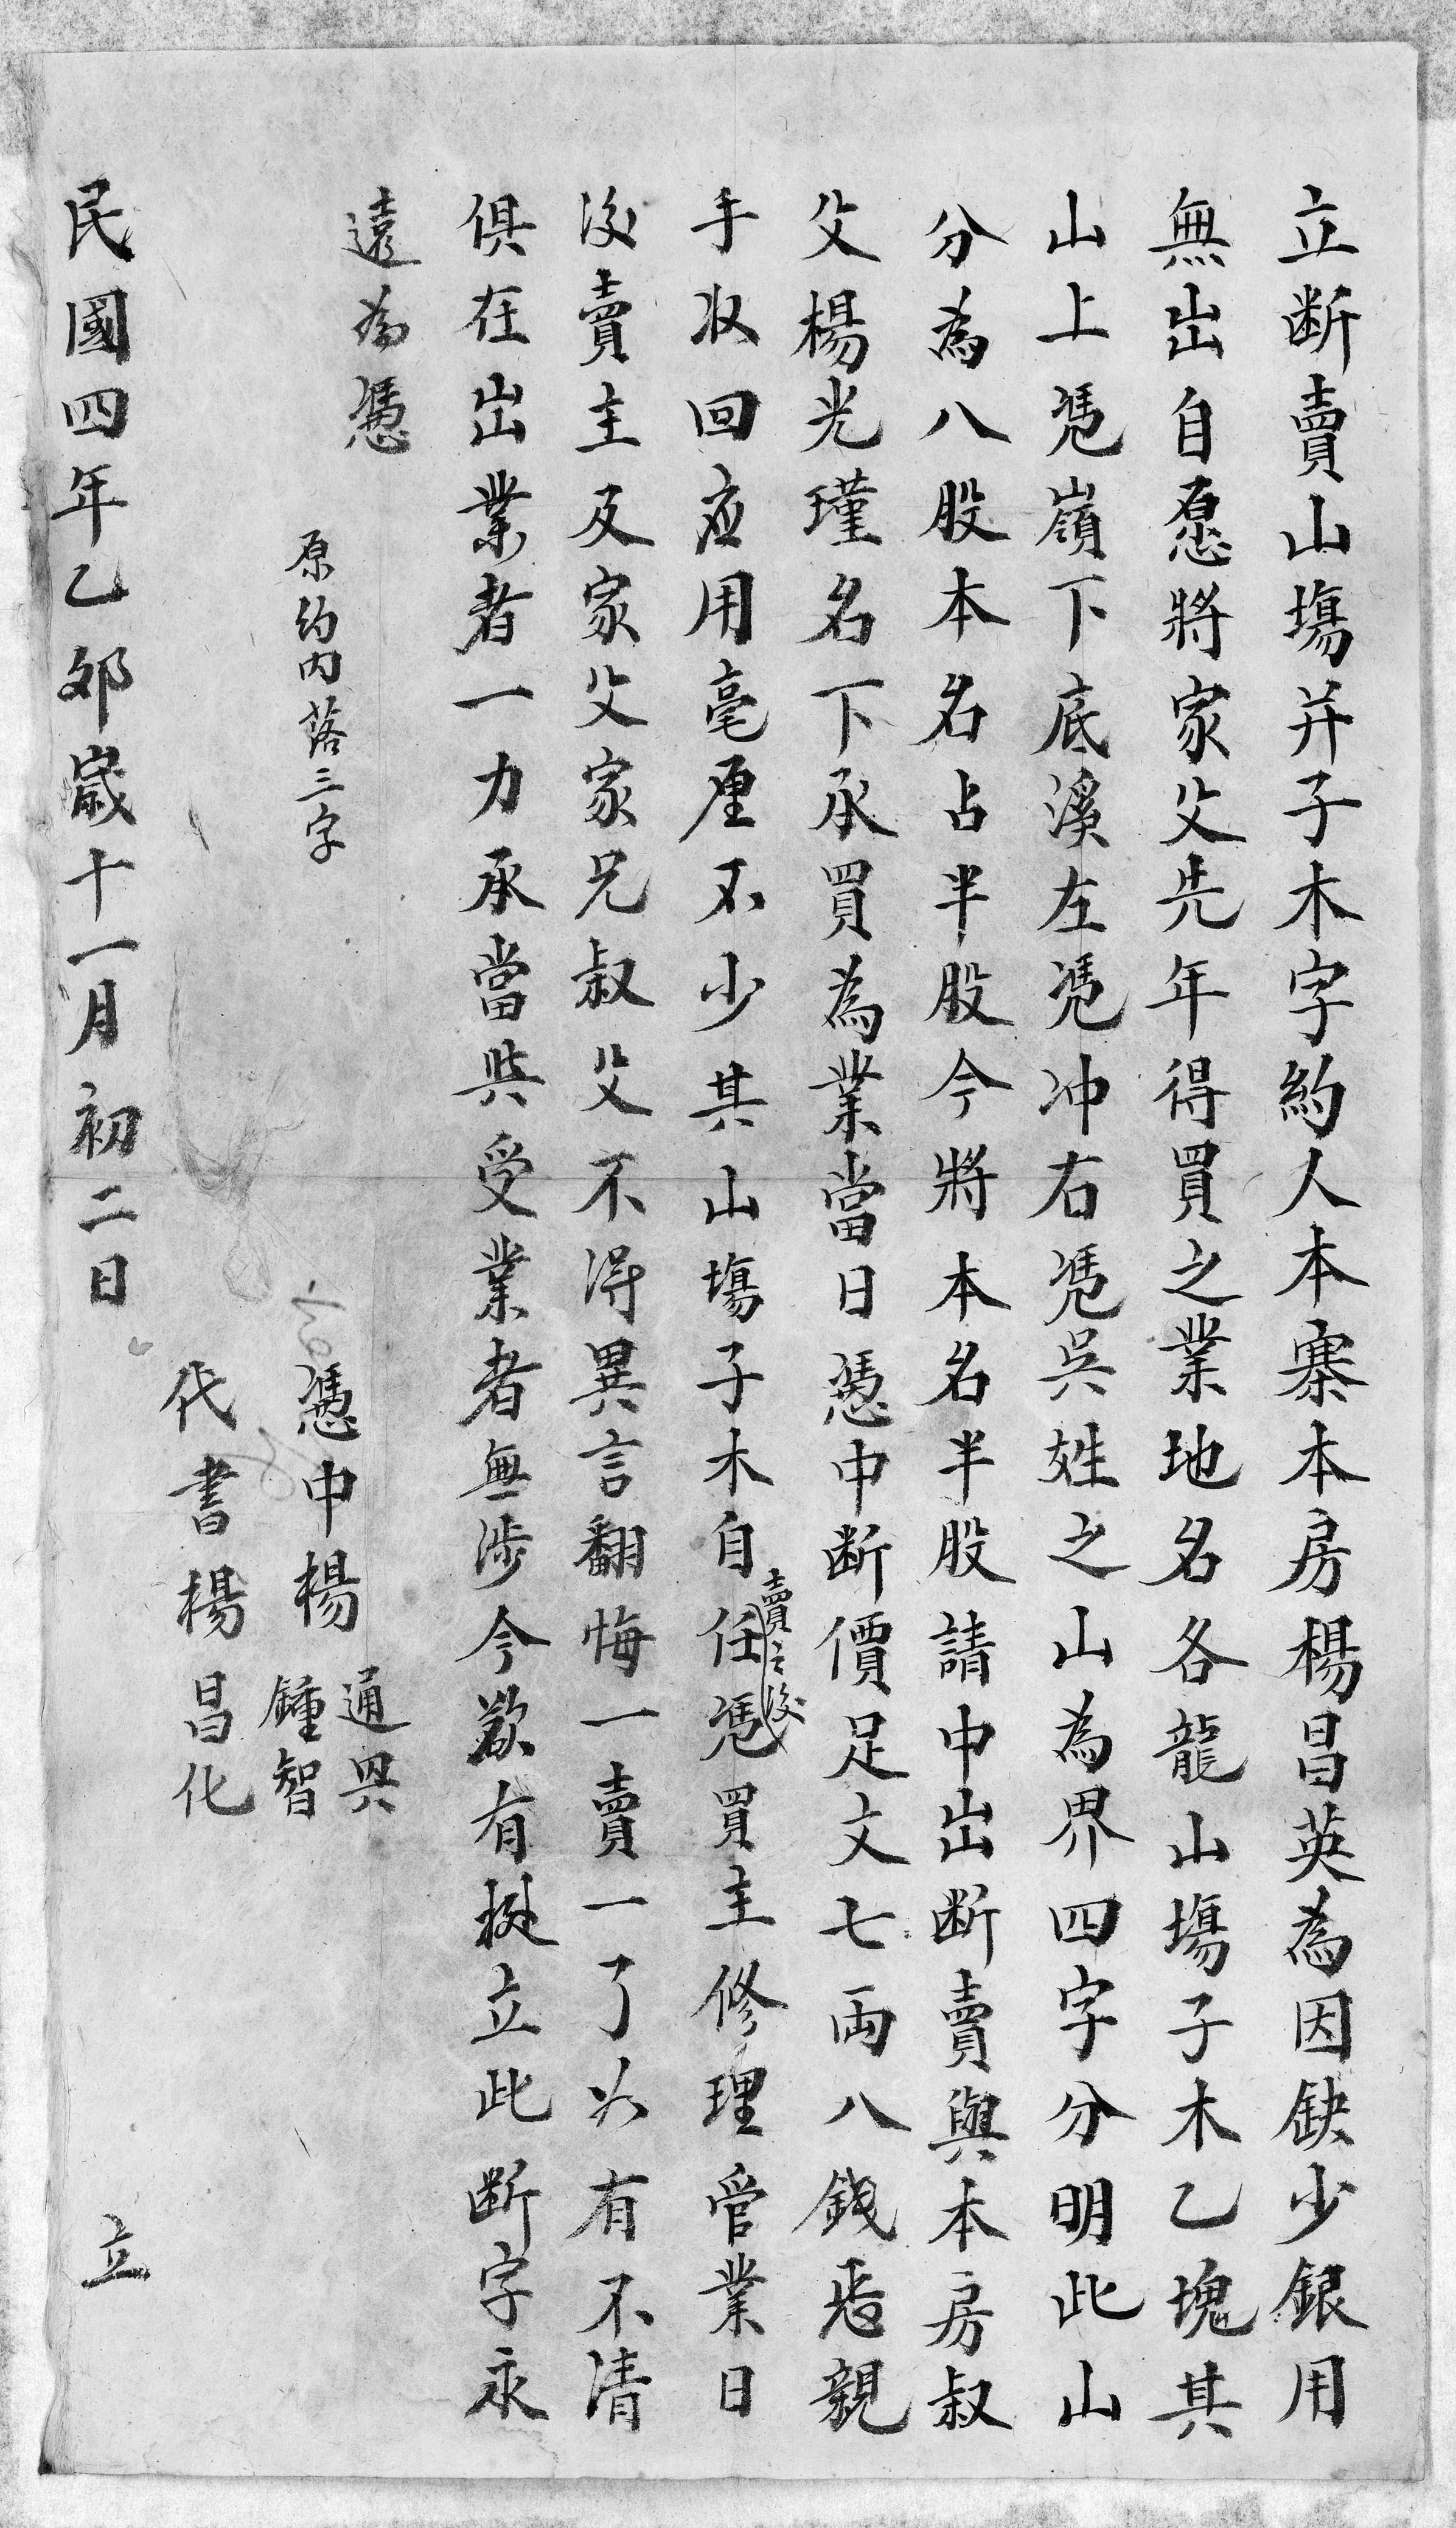 立断賣山塲并子木字約人本寨本房楊昌英為因缺少銀用
無出自愿將家父先年得買之業地名各龍山塲子木乙塊其
山上凴嶺下底溪左凴冲右凴吳姓之山為界四字分明此山
分為八股本名占半股今將本名半股請中出断賣與本房叔
父楊光瑾名下承買為業當日憑中断價足文七両八錢悉親
手收回应用毫厘不少其山塲子木自任凴買主修理管業日
賣之後
後賣主及家父家兄叔父不得異言翻悔一賣一了以有不清
俱在出業者一力承當與受業者無涉今欲有挺立此断字永
遠為憑
原約内落三字
憑中楊
通興
鍾智
代書楊昌化
民國四年乙夘歲十一月初二日 立